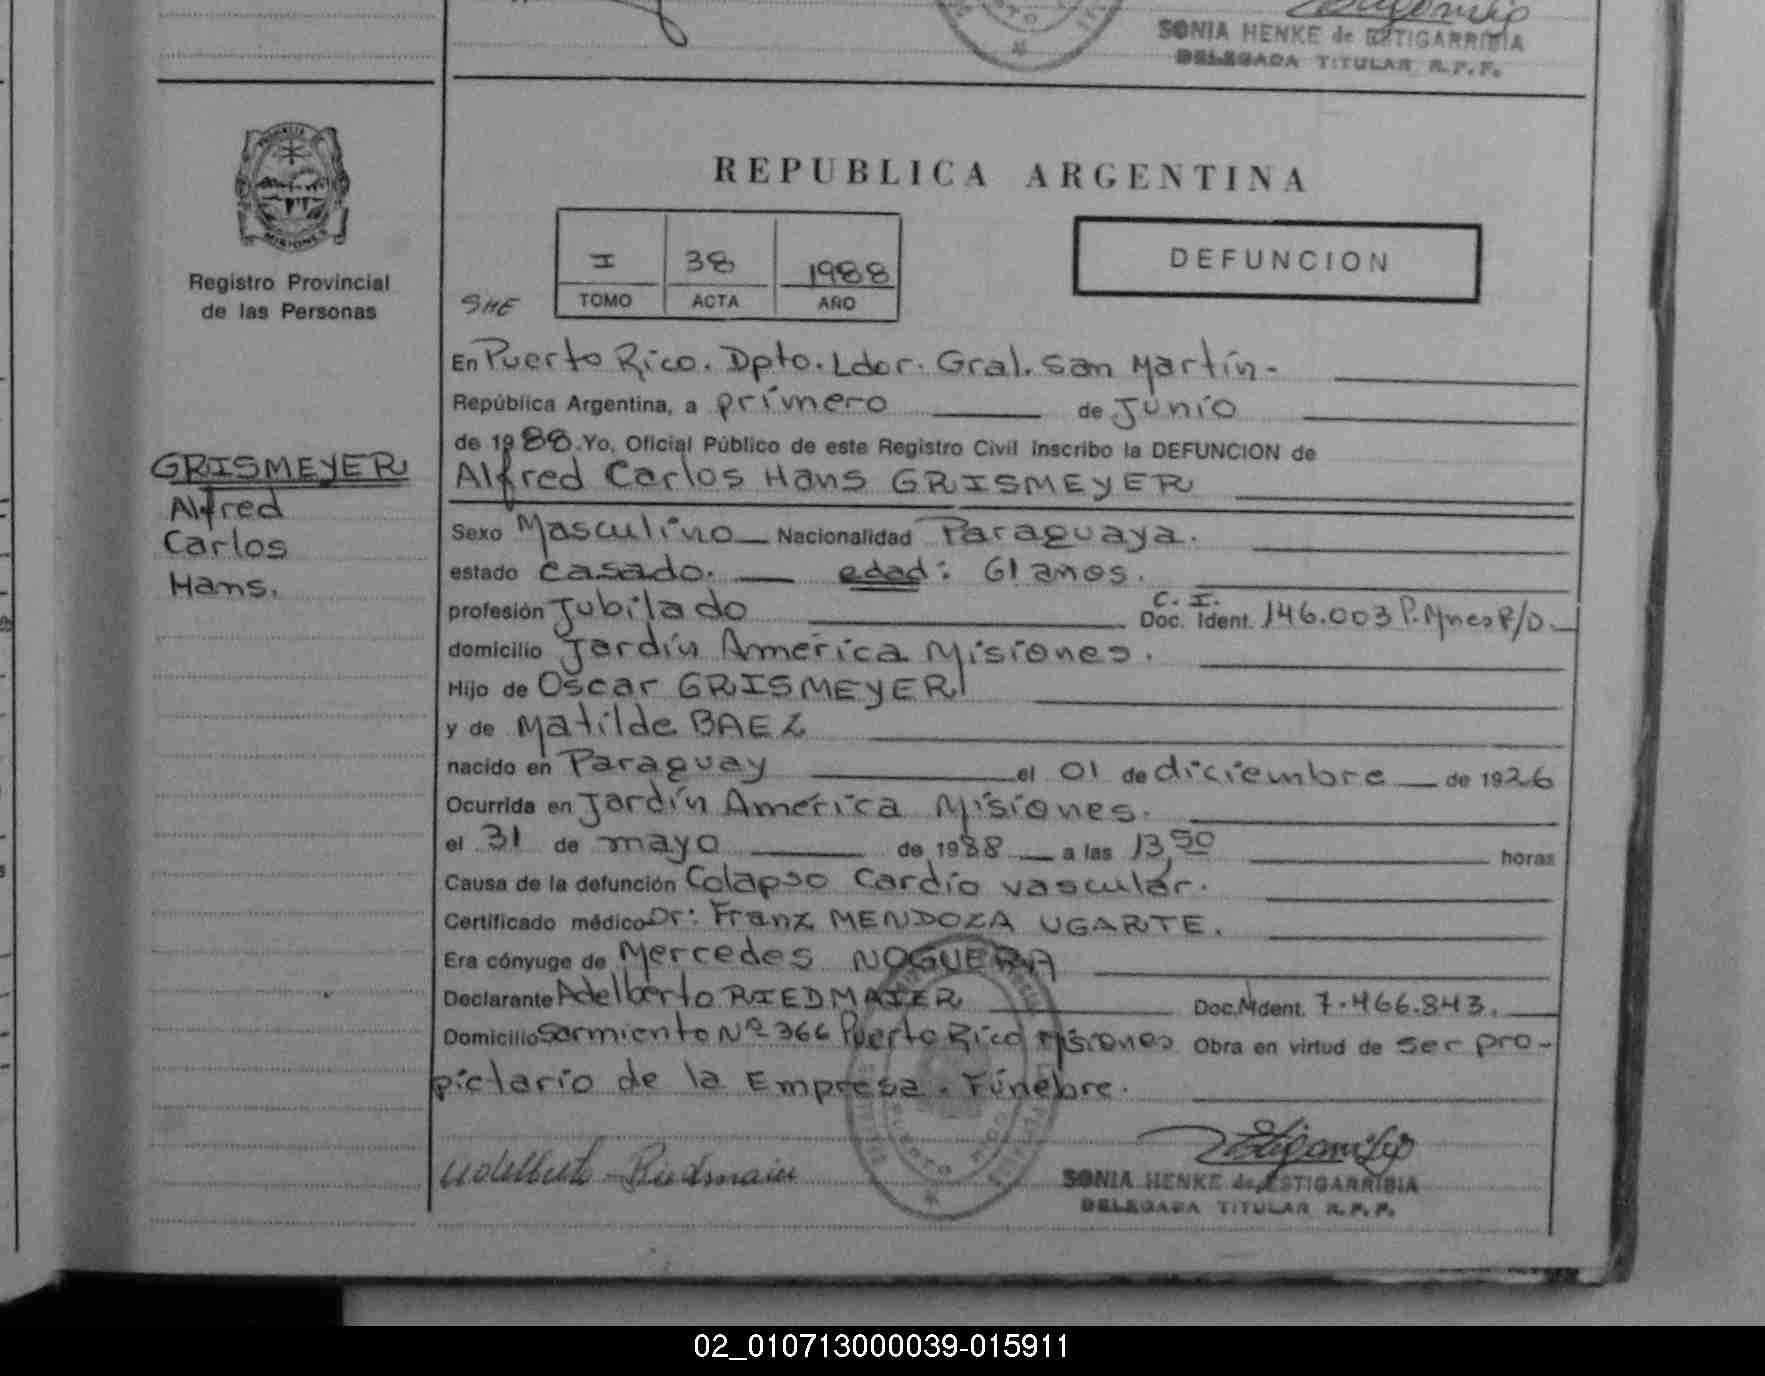 SONIA HENKE de ESTIGARRIBIA
DELEGADA TITULAR R.P.P.
MISIONES
Registro Provincial
de las Personas
GRISMEYER
Alfred
Carlos
Hans.
REPUBLICA ARGENTINA
I 38 1988
TOMO ACTA AÑO
DEFUNCION
SHE
En Puerto Rico. Dpto. Ldor. Gral. San Martín-
República Argentina, a primero de Junio
de 1988. Yo, Oficial Público de este Registro Civil inscribo la DEFUNCION de
Alfred Carlos Hans GRISMEYER
Sexo Masculino Nacionalidad Paraguaya.
estado casado. edad: 61 años.
C. I.
profesión Jubilado Doc. Ident. 146.003
domicilio Jardín América Misiones.
Hijo de Oscar GRISMEYER
y de Matilde BAEZ
nacido en Paraguay el 01 de diciembre de 1926
Ocurrida en Jardín América Misiones.
el 31 de mayo de 1988 a las 13,50 horas
Causa de la defunción Colapso Cardío vascular.
Certificado médico Dr: Franz MENDOZA UGARTE.
Era cónyuge de Mercedes NOGUERA
Declarante Adelberto RIEDMAIER Doc. Ident. 7.466.843.
Domicilio Sarmiento Nº 366 Puerto Rico Misiones Obra en virtud de ser pro-
pietario de la Empresa. Fúnebre.
Adelberto Riedmaier
SONIA HENKE de ESTIGARRIBIA
DELEGADA TITULAR R.P.P.
02_010713000039-015911